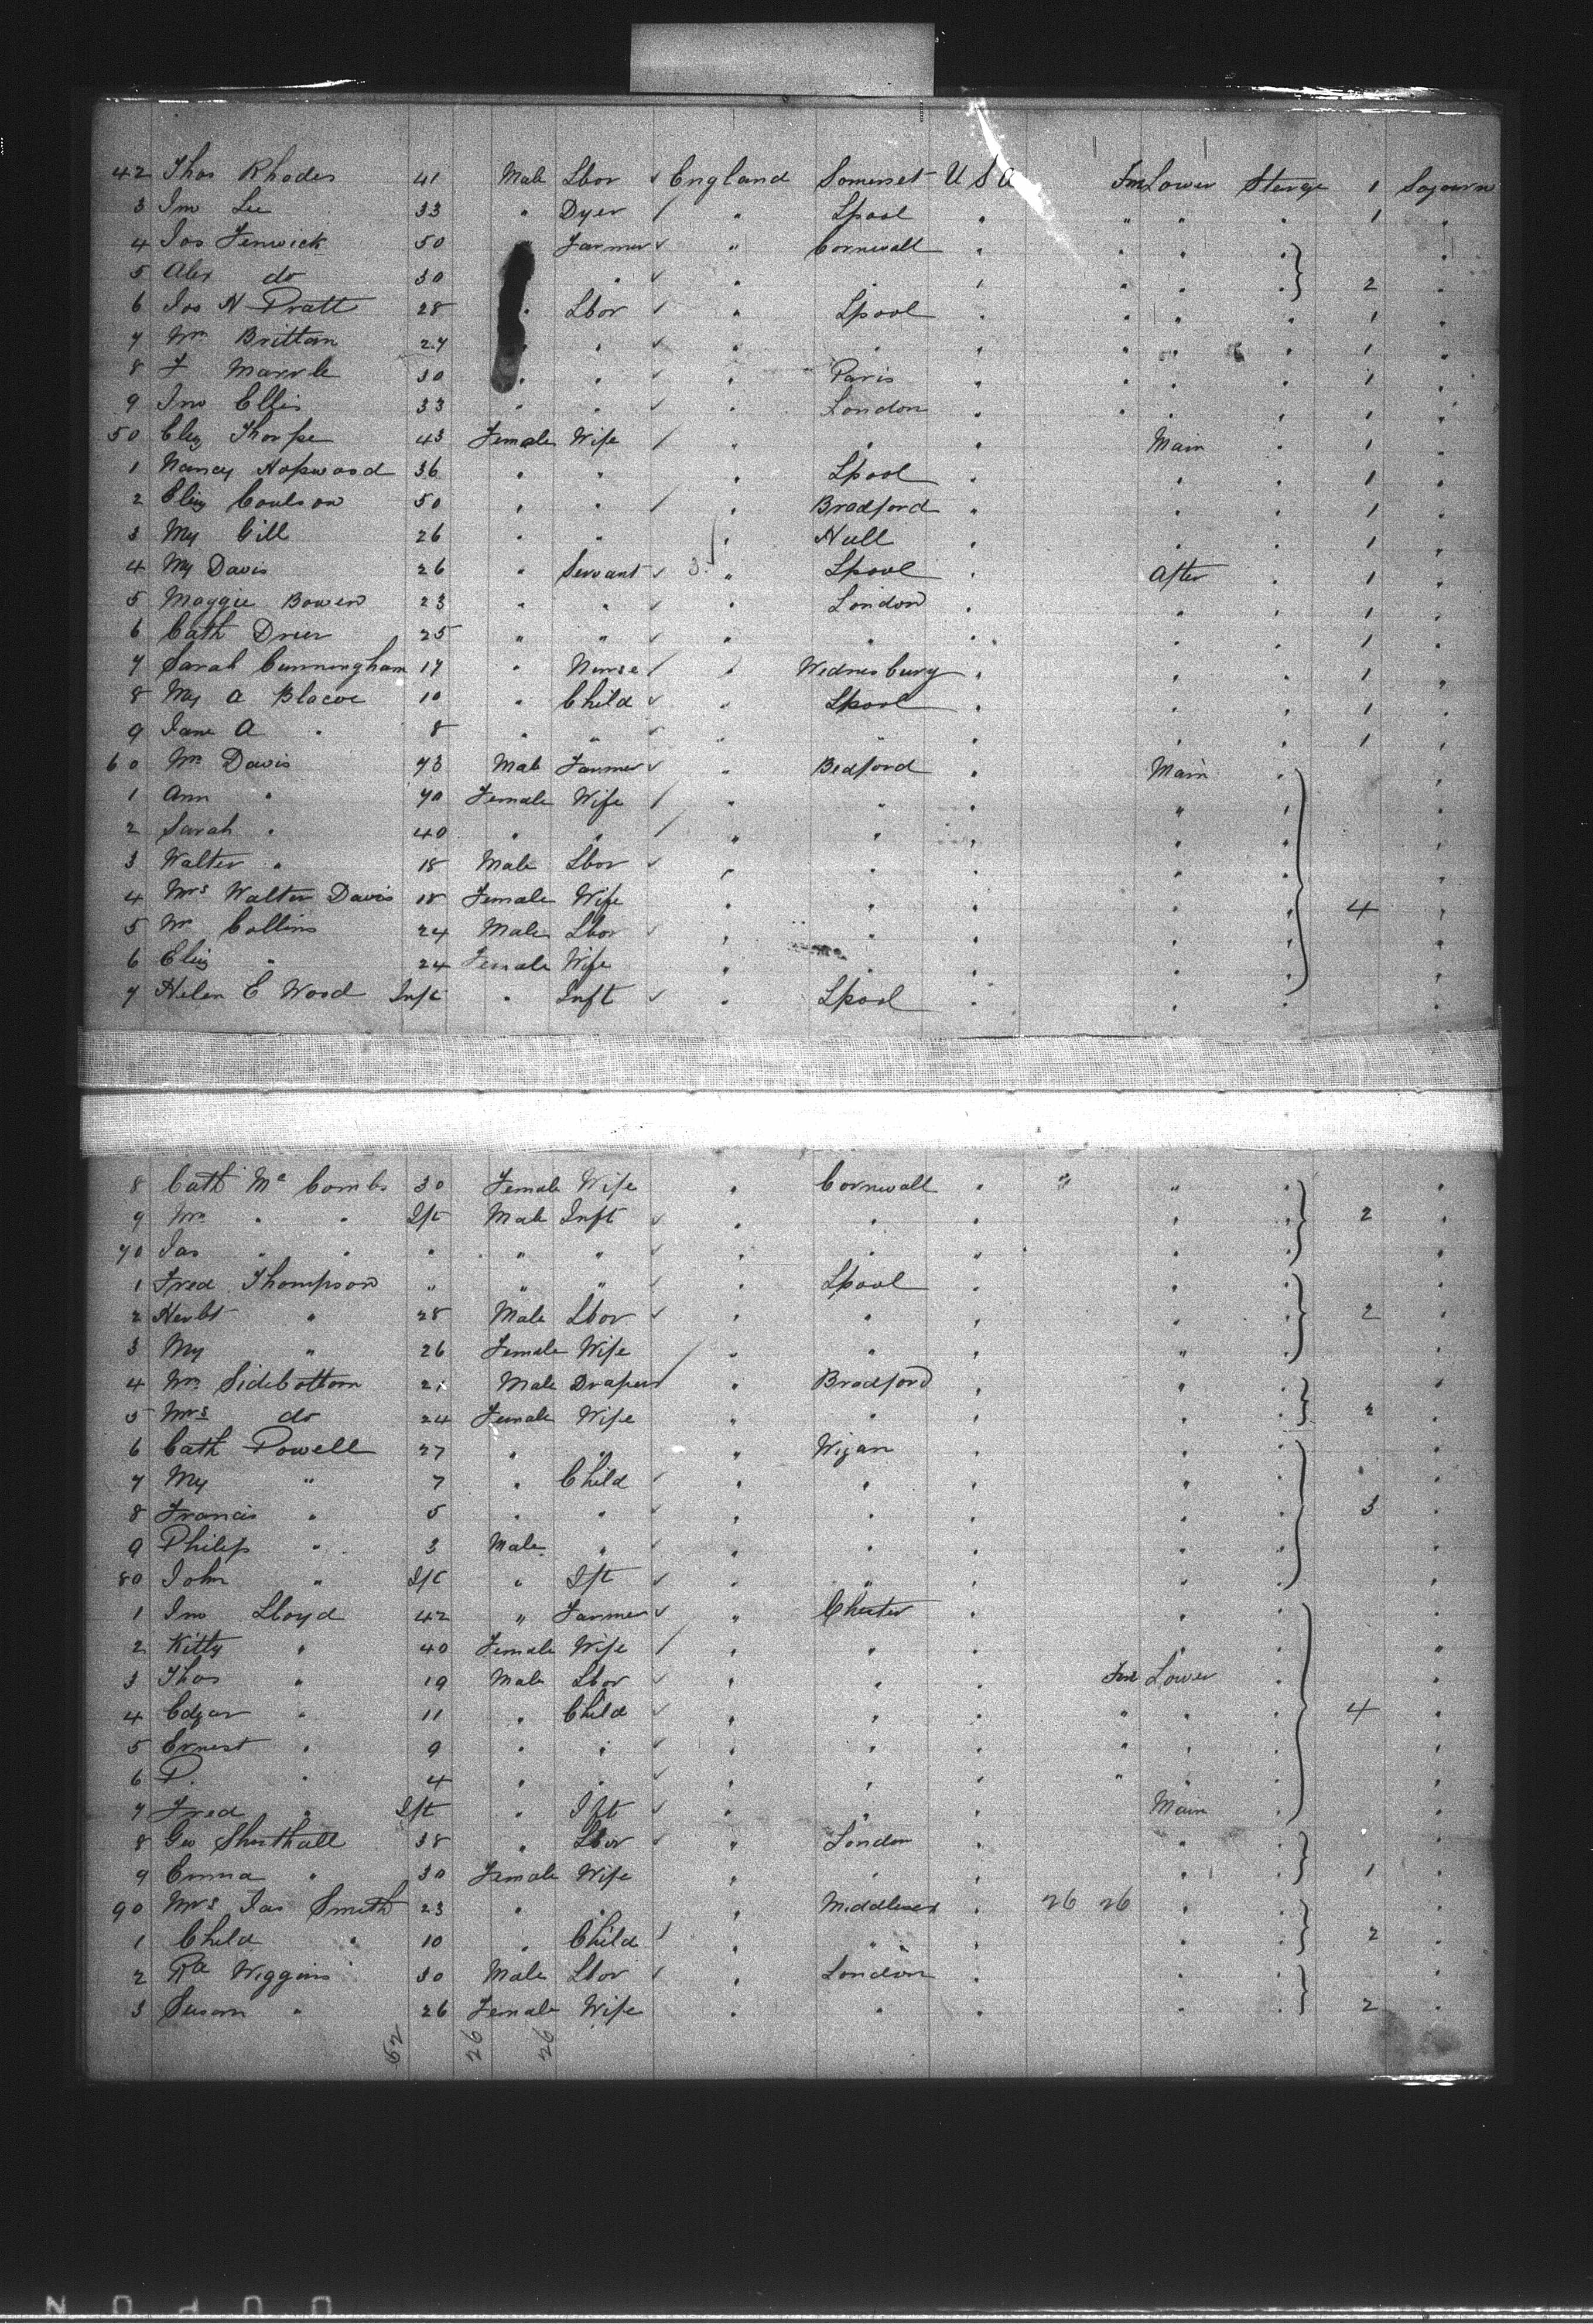 42 Thos Rhodes 41 Male Lbor ✓ England Somerset U S A Fm Lower Sterge 1 Sojourn
3 Jno Lee 33 " Dyer / " Lpool " " " " 1 "
4 Jos Fenwick 50 " Farmer ✓ " Cornwall " " " " "
5 Alex do 30 " ✓ " " " " " " 2 "
6 Jos H Pratt 28 " Lbor ✓ " Lpool " " " " 1 "
7 Wm Brittain 27 " " ✓ " " " " " " 1 "
8 F Marvle 30 " " ✓ " Paris " " " " 1 "
9 Jno Ellis 33 " " ✓ " London " " " " 1 "
50 Eliz Thorpe 43 Female Wife / " " " Main " 1 "
1 Nancy Hopwood 36 " " " Lpool " " " 1 "
2 Eliz Coulson 50 " " / " Bradford " " " 1 "
3 My Gill 26 " " " Hull " " " 1 "
4 My Davis 26 " Servant ✓ " Lpool " After " 1 "
5 Maggie Bowen 23 " " ✓ " London " " " 1 "
6 Cath Drier 25 " " ✓ " " " " " 1 "
7 Sarah Cunningham 17 " Nurse / " Wednesbury " " " 1 "
8 My A Blacoe 10 " Child ✓ " Lpool " " " 1 "
9 Jane A " 8 " " ✓ " " " " " 1 "
60 Wm Davis 73 Male Farmer ✓ " Bedford " Main " "
1 Ann " 70 Female Wife / " " " " " "
2 Sarah " 40 " " / " " " " " "
3 Walter " 18 Male Lbor ✓ " " " " " "
4 Mrs Walter Davis 18 Female Wife " " " " " 4 "
5 Wm Collins 24 Male Lbor ✓ " " " " " "
6 Eliz " 24 Female Wife " " " " " "
7 Helen E Wood Inft " Inft ✓ " Lpool " " " "
8 Cath Mc Combs 30 Female Wife " Cornwall " " " " "
9 Wm " " Ift Male Inft ✓ " " " " " 2 "
70 Jas " " " " " ✓ " " " " " "
1 Fred Thompson " " " ✓ " Lpool " " " "
2 Herbt " 28 Male Lbor ✓ " " " " " 2 "
3 My " 26 Female Wife / " " " " " "
4 Wm Sidebottom Male Draper / " Bradford " " " "
5 Mrs do 24 Female Wife " " " " " 2 "
6 Cath Powell 27 " " " Wigan " " " "
7 My " 7 " Child ✓ " " " " " "
8 Francis " 5 " " ✓ " " " " " 3 "
9 Philip " 3 Male " ✓ " " " " " "
80 John " Ift " Ift ✓ " " " " " "
1 Jno Lloyd 42 " Farmer ✓ " Chester " " " "
2 Kitty " 40 Female Wife / " " " " " "
3 Thos " 19 Male Lbor ✓ " " " Fm Lower " "
4 Edgar " 11 " Child ✓ " " " " " " 4 "
5 Ernest " 9 " " ✓ " " " " " " "
6 P. " 4 " " ✓ " " " " " " "
7 Fred " Ift " Ift ✓ " " " Main " "
8 Geo Shuthall 38 " Lbor ✓ " London " " " "
9 Emma " 30 Female Wife " " " " " 1 "
90 Mrs Jas Smith 23 " " " Middlesex " 26 26 " " "
1 Child " 10 " Child / " " " " " 2 "
2 Rd Wiggins 30 Male Lbor ✓ " London " " " "
3 Susan " 26 Female Wife " " " " " 2 "
52 26 26